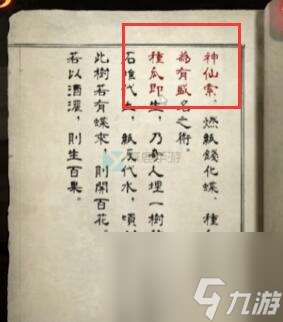 神仙索，燃紙錢化蝶，種
為有盛名之術。
種瓜即生，乃奇人埋一樹
石堆代土，紙灰代水，頃
此樹若有蝶來，則開百花。
若以酒灌，則生百果。
九游